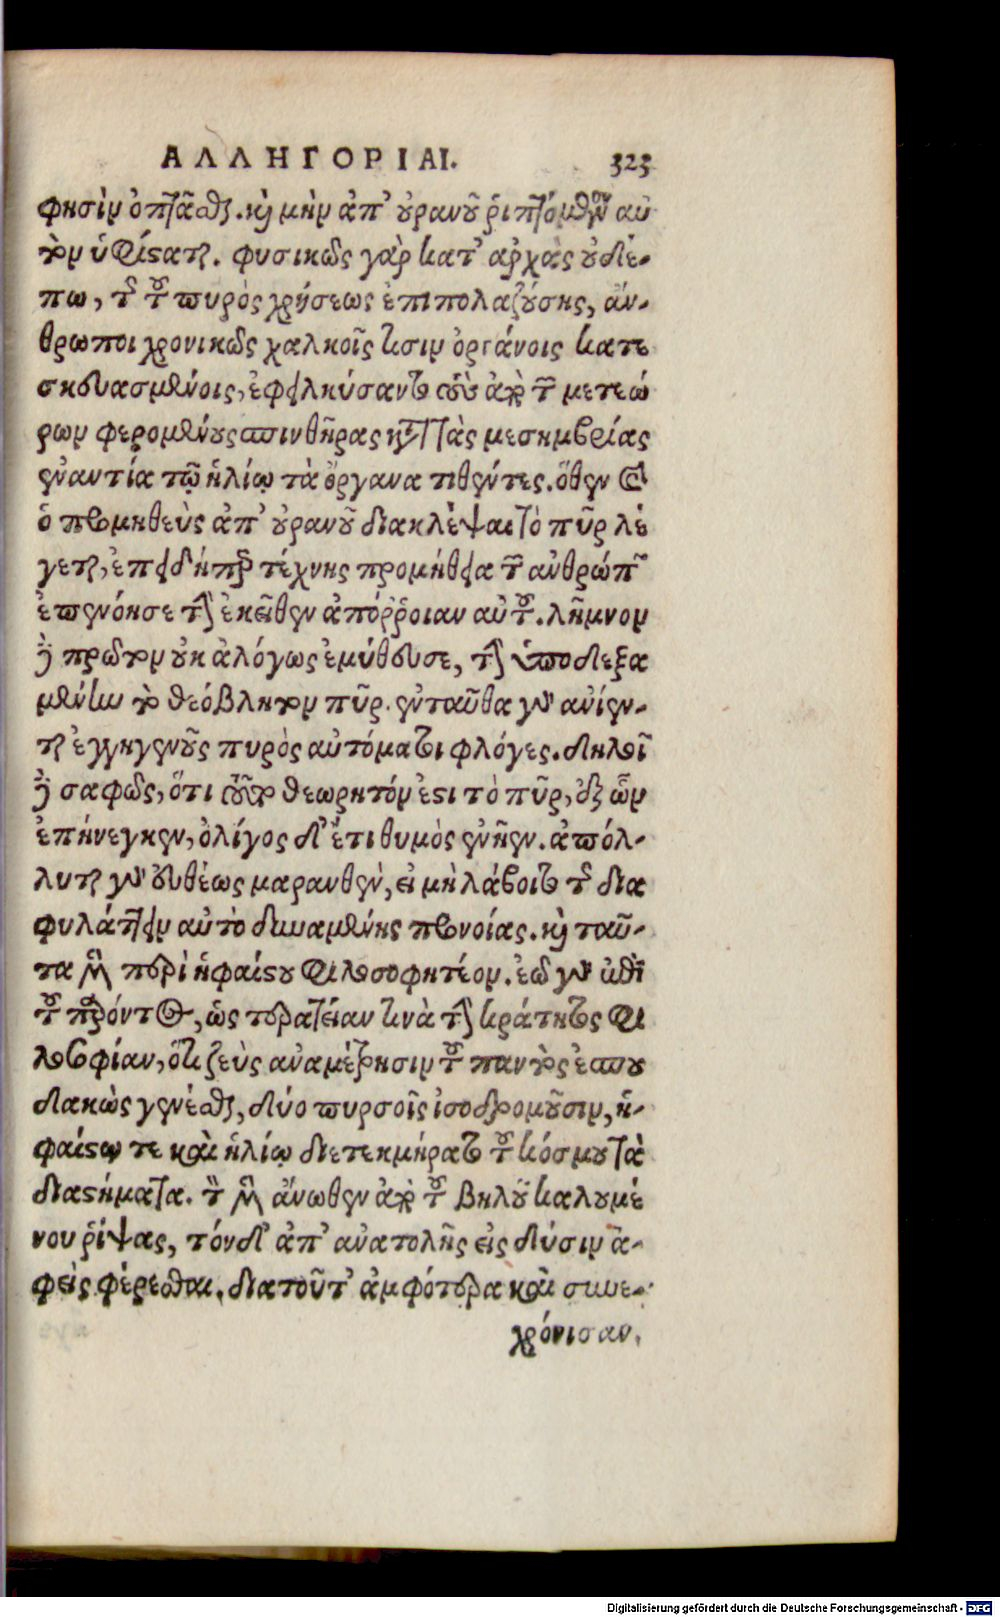 ΑΛΛΗΓΟΡΙΑΙ. 323
φησὶν ὀπτᾶσθαι. καὶ μὴν ἀπ’ οὐρανοῦ ῥιπτόμενον αὐ
τὸν ὑφίσταται. φυσικῶς γὰρ κατ’ ἀρχὰς οὐδέ-
πω, τῆς τοῦ πυρὸς χρήσεως ἐπιπολαζούσης, ἄν-
θρωποι χρονικῶς χαλκοῖς τισιν ὀργάνοις κατε
σκευασμένοις, ἐφειλκύσαντο τοὺς ἀπὸ τῶν μετεώ
ρων φερομένους σπινθῆρας κατὰ τὰς μεσημβρίας
ἐναντία τῷ ἡλίῳ τὰ ὄργανα τιθέντες. ὅθεν
ὁ προμηθεὺς ἀπ’ οὐρανοῦ διακλέψαι τὸ πῦρ λέ
γεται, ἐπειδήπερ τέχνης προμήθεια τῶν ἀνθρώπων
ἐπενόησε τὴν ἐκεῖθεν ἀπόῤῥοιαν αὐτοῦ. λῆμνον
δὲ πρῶτον οὐκ ἀλόγως ἐμύθευσε, τὴν ὑποδεξα
μένην τὸ θεόβλητον πῦρ. ἐνταῦθα γὰρ ἀνίεν-
ται ἐγγηγενοῦς πυρὸς αὐτόματοι φλόγες. δηλοῖ
δὲ σαφῶς, ὅτι τοῦτο θεωρητόν ἐστι τὸ πῦρ, ἐξ ὧν
ἐπήνεγκεν, ὀλίγος δ’ ἔτι θυμὸς ἐνῆεν. ἀπόλ-
λυται γὰρ εὐθέως μαρανθὲν, εἰ μὴ λάβοιτο τῆς δια
φυλάττειν αὐτὸ δυναμένης προνοίας. καὶ ταῦ-
τα μὲν περὶ ἡφαίστου φιλοσοφητέον. ἐῶ γὰρ ἐπὶ
τοῦ παρόντος, ὡς τερατείαν τινὰ τὴν κράτητος φι
λοσοφίαν, ὅτι ζεὺς ἀναμέτρησιν τοῦ παντὸς ἐσπου
δακὼς γενέσθαι, δύο πυρσοῖς ἰσοδρομοῦσιν, ἡ-
φαίστῳ τε καὶ ἡλίῳ διετεκμήρατο τοῦ κόσμου τὰ
διαστήματα. τὸν μὲν ἄνωθεν ἀπὸ τοῦ βηλοῦ καλουμέ
νου ῥίψας, τόνδ’ ἀπ’ ἀνατολῆς εἰς δύσιν ἀ-
φεὶς φέρεσθαι. διατοῦτ’ ἀμφότερα καὶ συνε-
χρόνισαν.
Digitalisierung gefördert durch die Deutsche Forschungsgemeinschaft - DFG